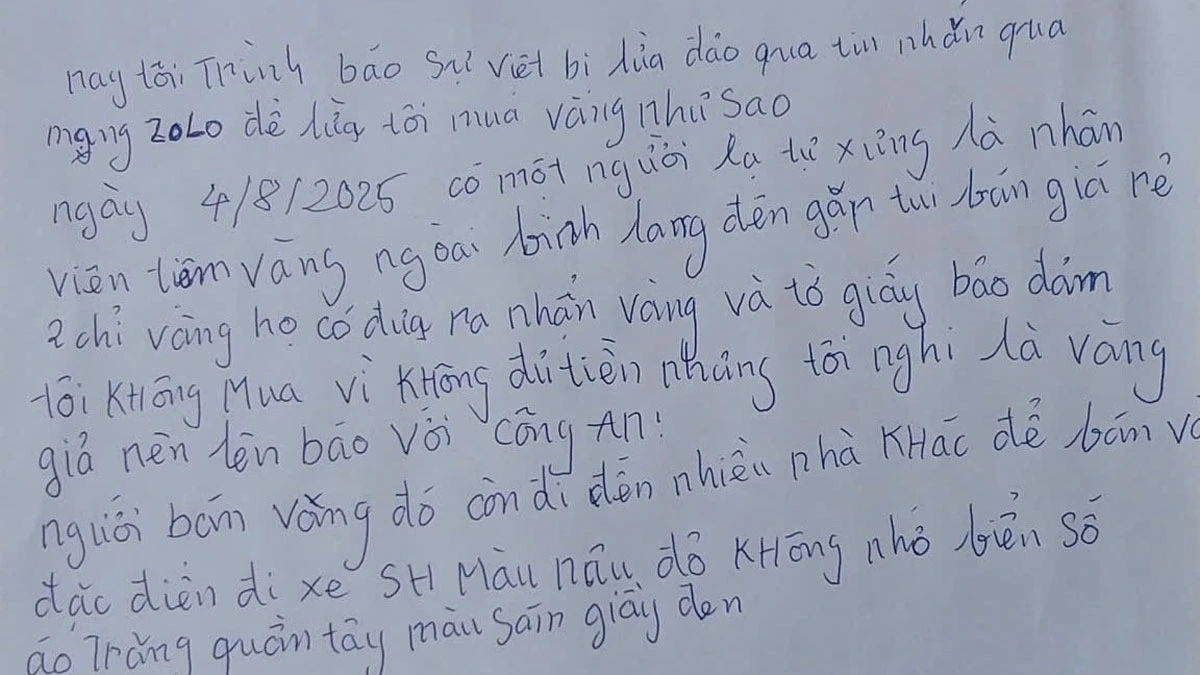 nay tôi Trình báo sự việt bị lừa đảo qua tin nhắn qua
mạng ZOLO để lừa tôi mua vàng như sao
ngày 4/8/2025 có một người lạ tự xưng là nhân
viên tiệm vàng ngoài bình lang đến gặp tui bán giá rẻ
2 chỉ vàng họ có đưa ra nhẫn vàng và tờ giấy bảo đảm
tôi KHông Mua vì KHông đủ tiền nhưng tôi nghi là vàng
giả nên lên báo với công AN!
người bán vàng đó còn đi đến nhiều nhà KHác để bán và
đặc điển đi xe SH Màu nâu đỏ KHông nhớ biển số
áo Trắng quần tây màu sấn giầy đen